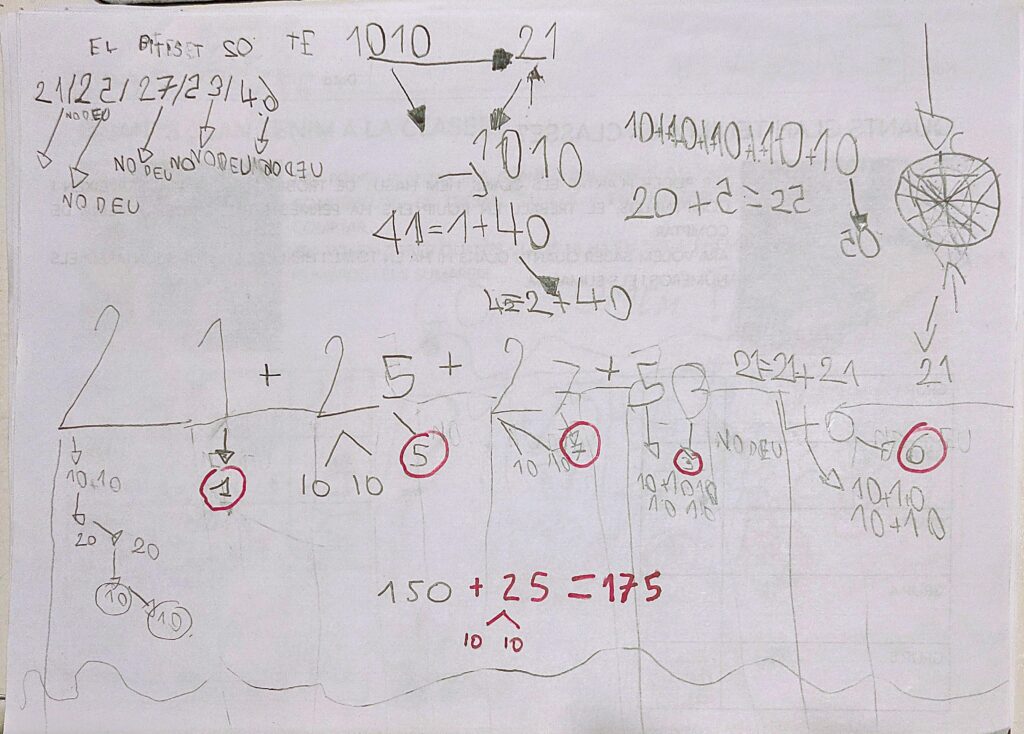 EL SO TE 1010 21
21/25/27/53/4
NO DEU
NO DEU NO NO DEU NO DEU
NO DEU
1010
10+10+10+10+10
50
20+5=25
41=1+40
4=2+40
21=21+21
21
2 1 + 25 + 27 + 53
40
NO DEU
10+10
1
10 10
5
10 10
7
10+10 10
10 10
3
6
10+10
10+10
20
20
10
10
150 + 25 = 175
10 10